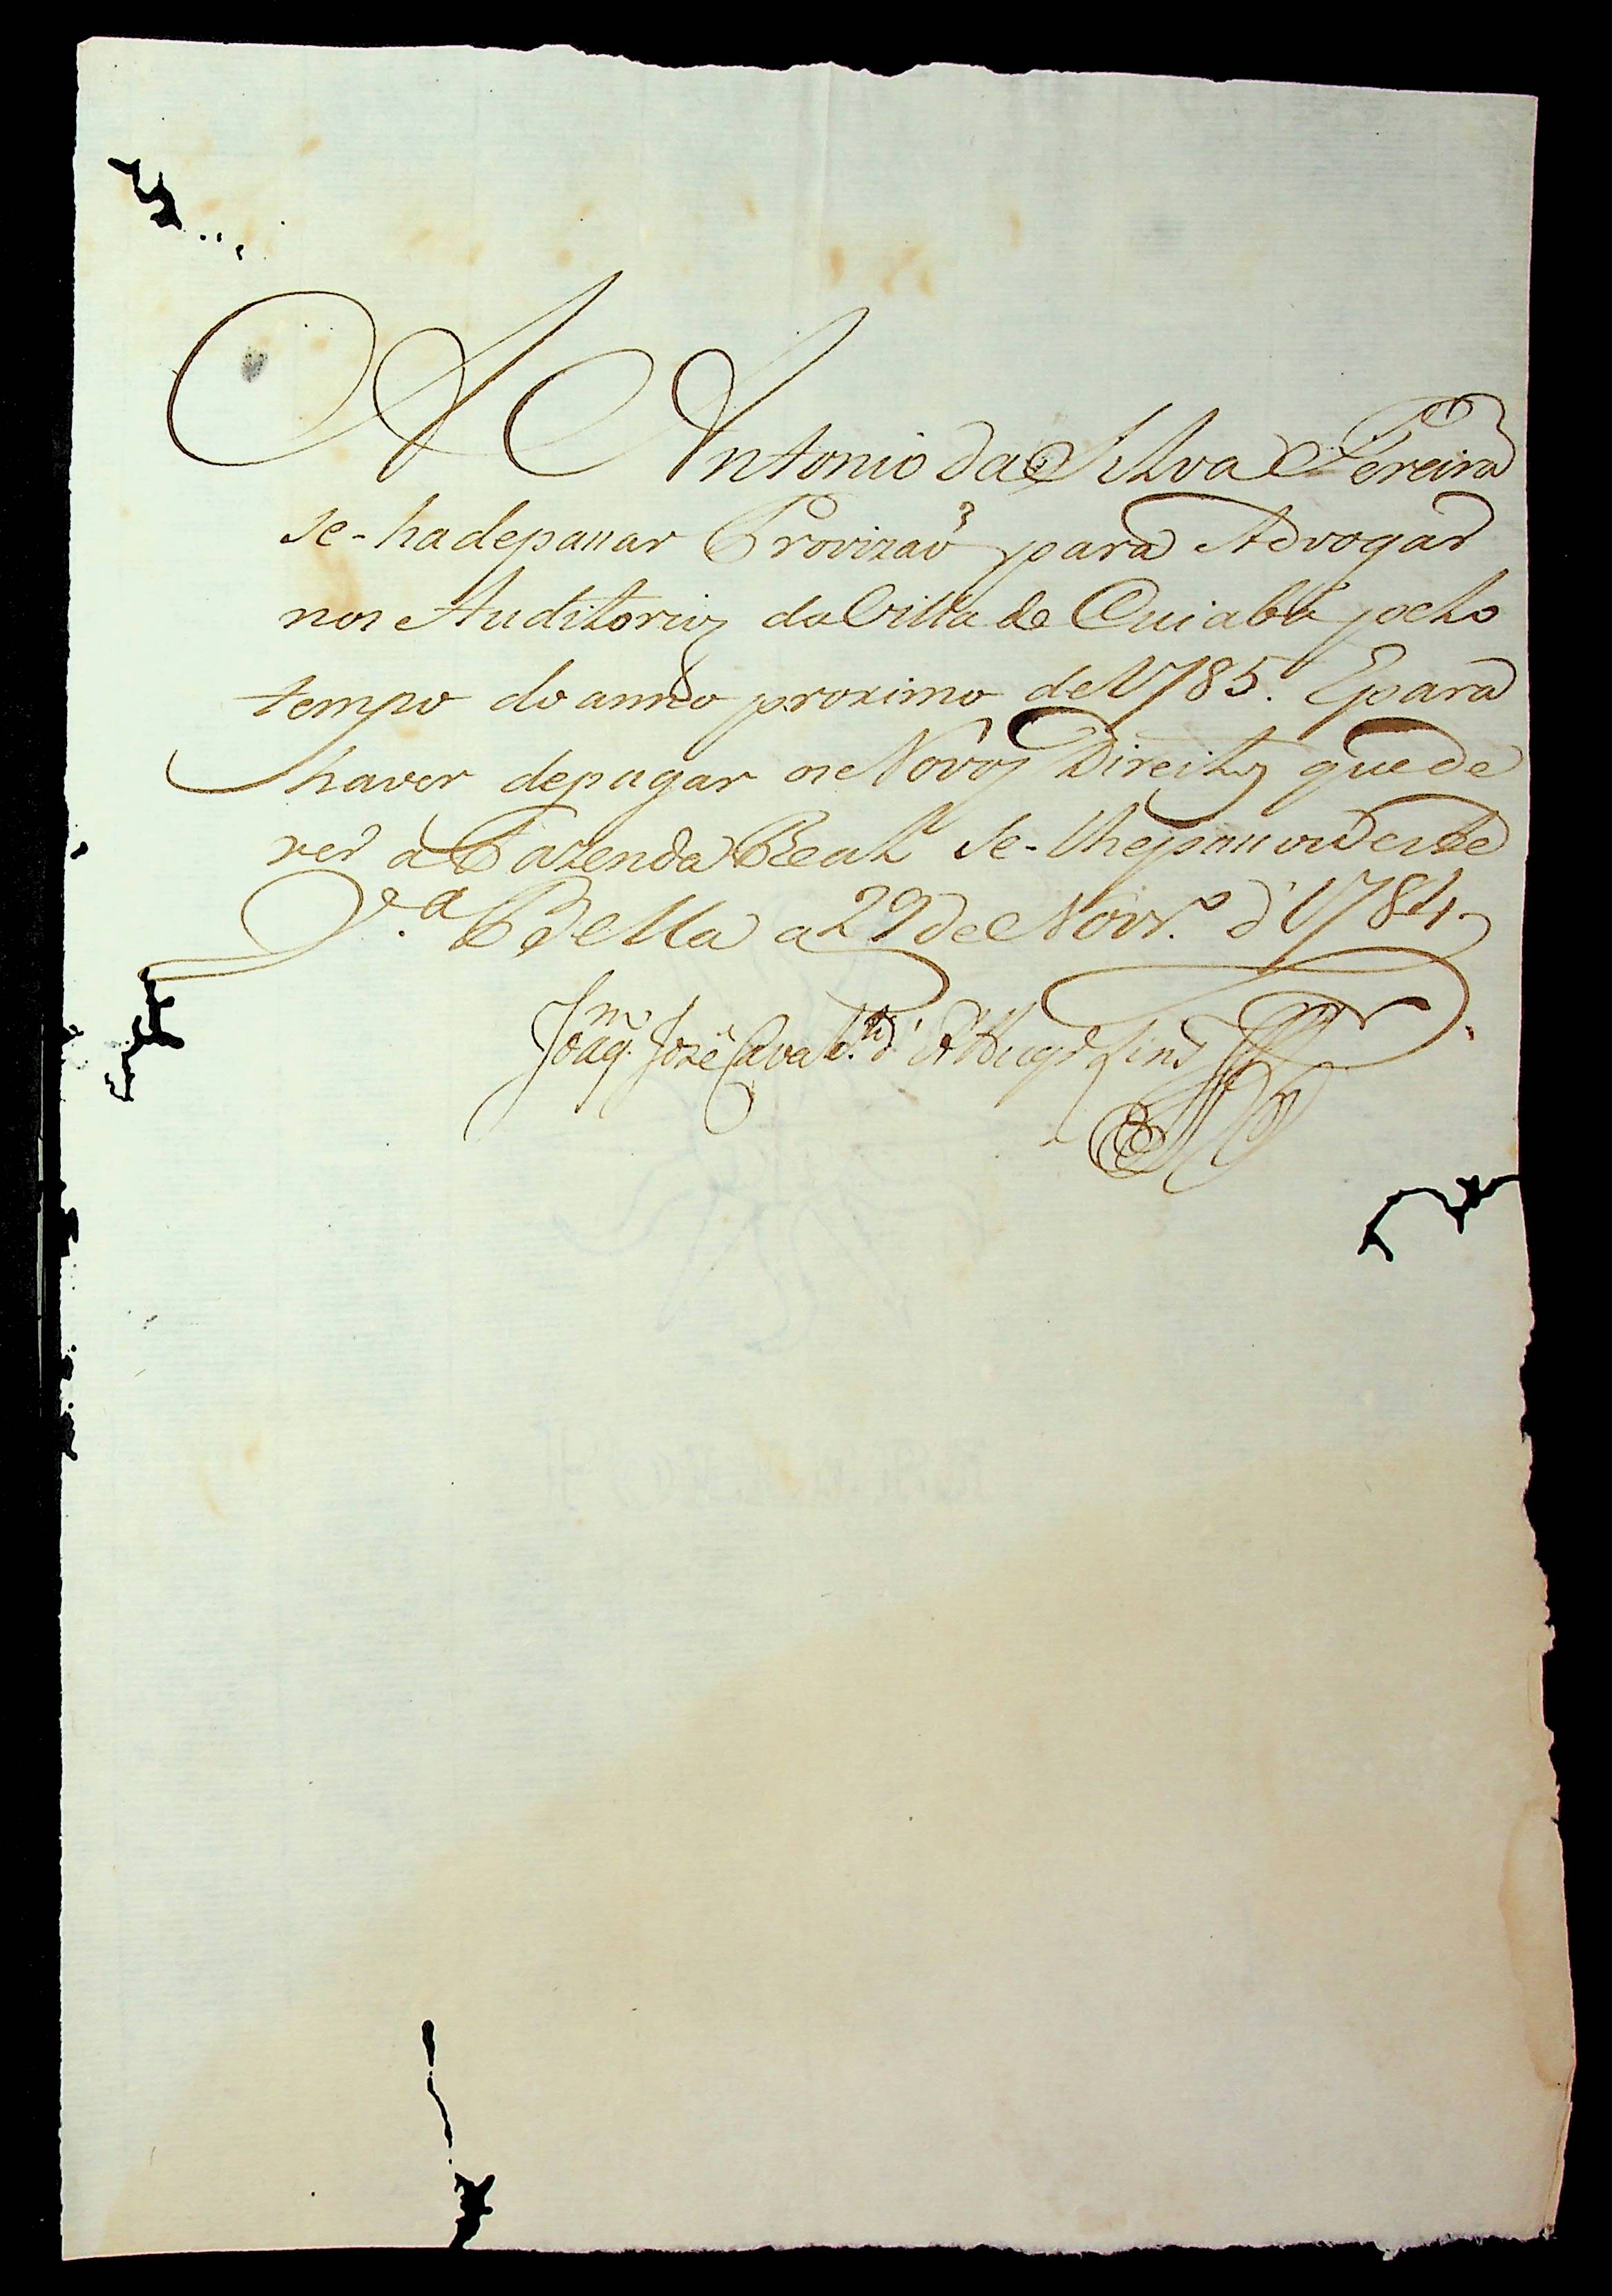 A Antonio da Silva Pereira
se-hadepassar Provizaõ para Advogar
nos Auditorios da Villa de Cuiabá pelo
tempo do anno proximo de 1785. E para
haver depagar os Novos Direitos que de
ver a Fazenda Real se-lhe passou este
V.ª Bella a 29 de Novr.º d'1784
Joaq.m José Caval.ti d'Albuq.e Lins